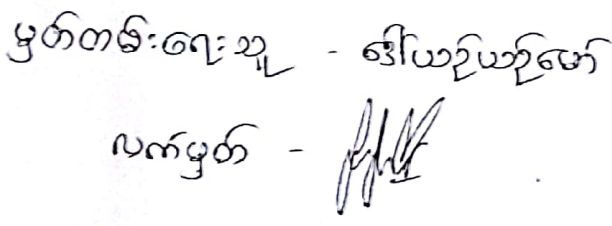 မှတ်တမ်းရေးသူ - ဒေါ်ယဉ်ယဉ်မော်
လက်မှတ် -